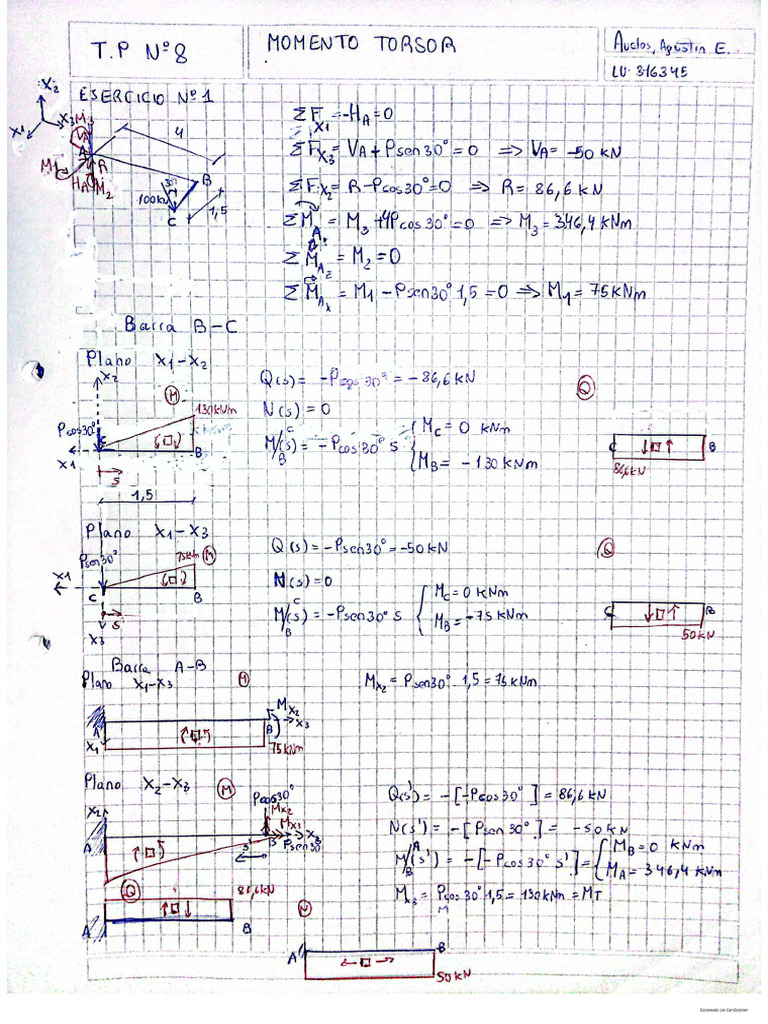 T.P Nº8
MOMENTO TORSOR
Avalos, Agustin E.
LU: 316345
EJERCICIO Nº1
X2
X1
X3
M3
VA
A
4
M1
R
HA
M2
B
100KN
C
1,5
ΣF X1 = -HA = 0
ΣF X3 = VA + Psen30° = 0 ⇒ VA = -50 KN
ΣF X2 = R - Pcos30° = 0 ⇒ R = 86,6 KN
ΣM A = M3 + 4Pcos30° = 0 ⇒ M3 = 346,4 KNm
ΣM A2 = M2 = 0
ΣM Ax = M1 - Psen30° 1,5 = 0 ⇒ M1 = 75 KNm
Barra B-C
Plano X1-X2
X2
M
130KNm
Pcos30°
C
B
X1
s
1,5
Q(s) = -Pcos30° = -86,6 KN
N(s) = 0
M/(s) = -Pcos30° s { MC = 0 KNm
MB = -130 KNm
Q
C
B
86,6KN
Plano X1-X3
Psen30°
75KNm
M
X1
C
B
s
X3
Q(s) = -Psen30° = -50 KN
N(s) = 0
M/(s) = -Psen30° s { MC = 0 KNm
MB = -75 KNm
Q
C
B
50KN
Barra A-B
Plano X1-X3
M
Mx2 = Psen30° . 1,5 = 75 KNm
Mx2
X3
A
B
X1
75KNm
Plano X2-X3
M
Pcos30°
X2
Mx2
Mx3
X3
A
s'
B
Psen30
Q(s') = -[-Pcos30°] = 86,6 KN
N(s') = -[Psen30°] = -50KN
M/(s') = -[-Pcos30° s'] = { MB = 0 KNm
MA = 346,4 KNm
Mx3 = Pcos30° 1,5 = 130KNm = MT
Q
86,6KN
A
B
N
A
B
50KN
Escaneado con CamScanner